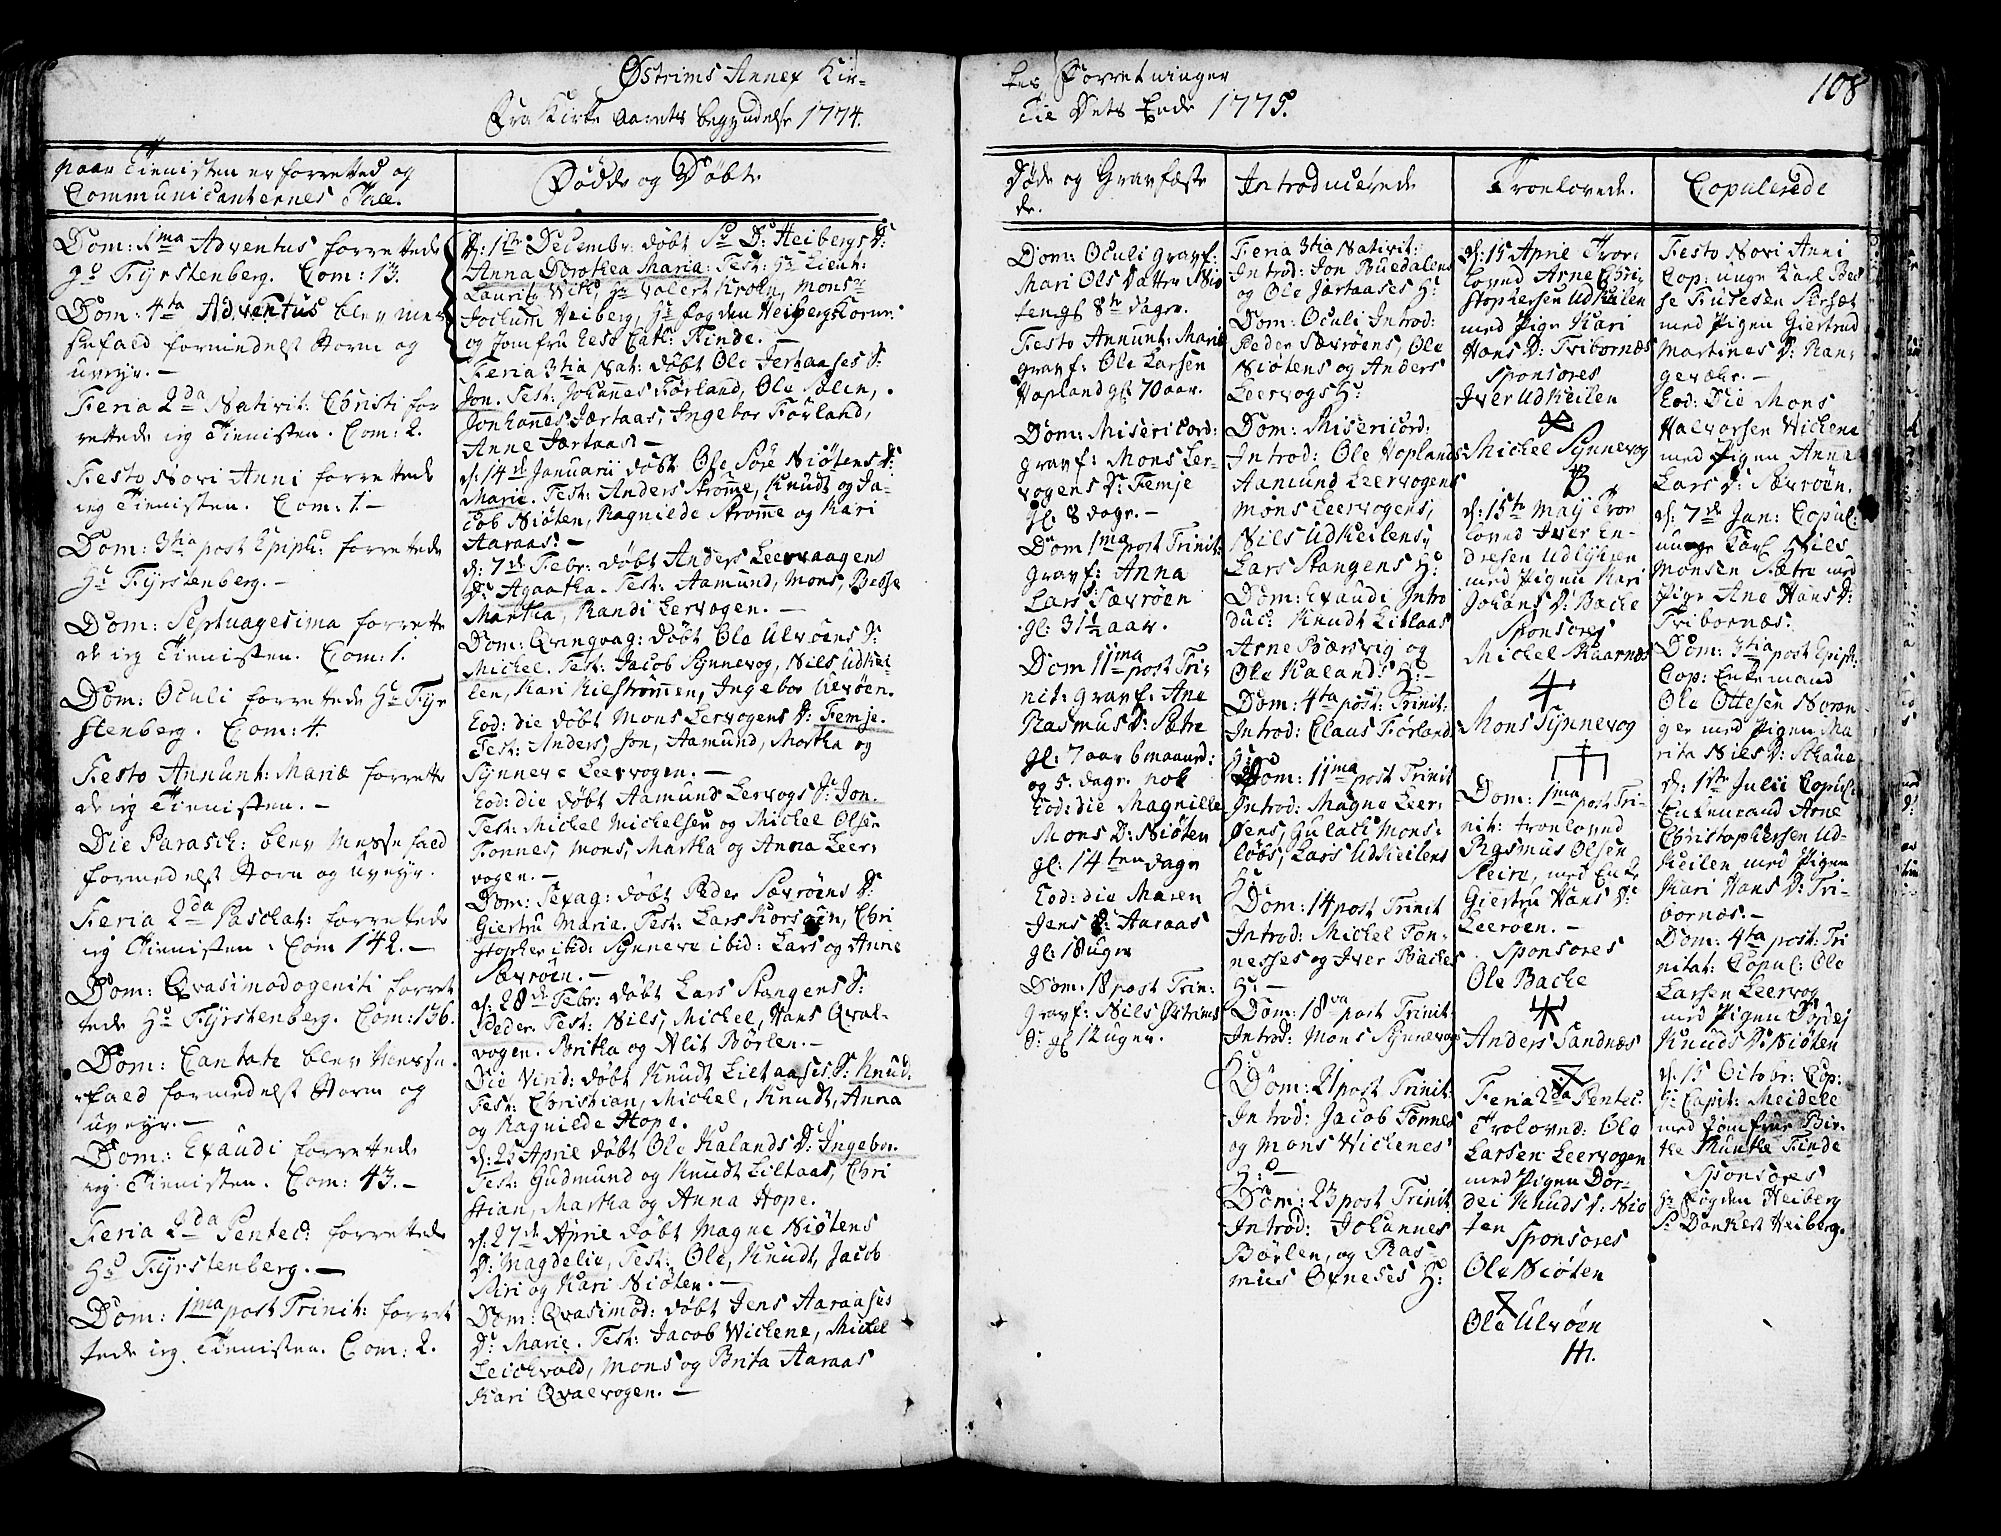 Østrims Annex Kir-
Fra Kirke Aarets begyndelse 1774.
naar Tienisten er forretted og
Communicanternes Tall.
Fødde og Døbte
Dom: 1ma Adventus forrettede
Hr Fÿrstenberg. Com: 13.
Dom: 4ta Adventus blev mes
sefald formedelst Storm og
uveyr. -
Feria 2da Nativit: Christi for
rettede ieg Tienisten. Com: 2.
Festo Novi Anni forrettede
ieg Tienisten. Com: 1. -
Dom: 3tia post Epiph: forrettede
Hr Fÿrstenberg. -
Dom: Septuagesima forrette
de ieg Tienisten. Com: 1.
Dom: Oculi forrettede Hr Fÿr
stenberg. Com: 4.
Festo Annunt: Mariæ forrette
de ieg Tienisten. -
Die Parasch: blev Messefald
formedelst Storm og Uveyr.
Feria 2da Paschat: forrettede
ieg Tienisten. Com 142. -
Dom: Qvasimodogeniti forret
tede Hr Fÿrstenberg. Com: 136.
Dom: Cantate blev Messe-
fald formedelst Storm og
uveyr. -
Dom: Exaudi forrettede
ieg Tienisten. Com: 43. -
Feria 2da Pentec: forrettede
Hr Fÿrstenberg. -
Dom: 1ma post Trinit: forret
tede ieg Tienisten. Com: 2.
d: 1ste Decembr: døbt Sr D: Heibergs D:
Anna Dorothea Maria: Test: Hr Lieut:
Lauritz Wik, Hr Valert Krohn, Monsr
Jochum Heiberg, Hr fogden Heiberg
og Jomfru Cath: Finde. -
Feria 3tia Nat: døbt Ole Jertaases S:
Jon. Test: Johannes Førland, Ole Solen,
Johannes Jærtaas, Ingebor Førland,
Anne Jærtaas -
d: 14de Januarii døbt Ole Søre Niøtens D:
Marie. Test: Anders Strømme, Knudt og Ja-
cob Niøten, Ragnilde Strømme og Kari
Aaraas. -
d: 7de Febr: døbt Anders Leervaagens
D: Agaatha. Test: Aamund, Mons, Besse
Martha, Randi Lervogen. -
Dom: Qvinqvag: døbt Ole Ulvøens S:
Michel. Test: Jacob Synnevog, Nils Udkei-
len, Kari Kilstrømmen, Ingebor Ulvøen.
Eod: die døbt Mons Lervogens D: Femje.
Test: Anders, Jon, Aamund, Martha og
Synneve Leervogen. -
Eod: die døbt Aamund Lervogs S: Jon.
Test: Michel Michelsen og Michel Olsen
Fonnes, Mons, Martha og Anna Leer-
vogen. -
Dom: Sexag: døbt Peder Sævrøens D:
Giertru Maria. Test: Lars Korsøen, Chri
stopher ibid: Synneve ibid: Lars og Anne
Sævrøen. -
d: 28de Febr: døbt Lars Stangens S:
Peder. Test: Nils, Michel, Hans Qval-
vogen. Britha og Alit Børlen. -
Die Virid: døbt Knudt Litlaases S: Knud.
Test: Christian, Michel, Knudt, Anna
og Ragnilde Hope.
d: 25 April døbt Ole Kalands D: Ingebor.
Test: Gudmund og Knudt Litlaas, Chri
stian, Martha og Anna Hope.
d: 27de April døbt Magne Niøtens
D: Magdelie, Test: Ole, Knudt, Jacob
Siri og Kari Niøten. -
Dom: Qvasimod: døbt Jens Aaraases
D: Marie. Test: Jacob Wichene, Michel
Leichvold, Mons og Brita Aaraas
Kari Qvalvogen. -
kes Forretninger
Til Dets Ende 1775.
108
Døde og Gravfæste
de.
Introducerede
Troelovede.
Copulerede
Dom: Oculi gravf:
Mari Ols Datter Niø
ten gl 8te dage.
Festo Annunt: Mariæ
gravf: Ole Larsen
Hopland gl 70 aar.
Dom: Misericord:
gravf: Mons Ler-
vogens D: Femje
gl: 8 dage. -
Dom 1ma post Trinit:
gravf: Anna
Lars Sævrøen
gl: 31½ aar.
Dom 11ma post Tri-
nit: gravf: Ane
Rasmus D: Sætre
gl: 7 aar 6 maaned:
og 5. dage. nok
Eod: die Magnille
Mons D: Niøten
gl: 14ten dage
Eod: die Maren
Jens D: Aaraas
gl: 18 uger
Dom: 18 post Trin:
gravf: Nils Østrims
D: gl 12 uger.
Feria 3tia Nativit:
Introd: Jon Buedalens
og Ole Jærtaases H:
Dom: Oculi Introd:
Peder Sævrøens, Ole
Niøtens og Anders
Leervogs H:
Dom: Misericord:
Introd: Ole Hoplands
Aamund Leervogens
Mons Leervogens,
Nils Udkeilens,
Lars Stangens H:
Dom: Exaudi Intro
duc: Knudt Litlaas
Arne Bærsvig og
Ole Kaland: H: -
Dom: 4ta post: Trinit:
Introd: Claus Førland
H:
Dom: 11ma post Trinit
Introd: Magne Leer-
øens, Gulach Mons-
løbs, Lars Udkeilens
H:
Dom: 14 post Trinit
Introd: Michel Fon-
nesses og Iver Baches
H: -
Dom: 18va post Trinit:
Introd: Mons Synnevogs
H:
Dom: 21 post Trinit:
Introd: Jacob Fonnes
og Mons Wichenes
H: -
Dom: 23 post Trinit
Introd: Johannes
Børlen, og Ras-
mus Øxneses H:
d: 15 April Troe-
loved Arne Chri-
stophersen Udkeilen
med Pige Kari
Hans D: Tribornæs
Sponsores
Iver Udkeilen
Michel Synnevog
d: 15te Maÿ Troe
loved Iver En-
dresen Udkeilen
med Pigen Kari
Johans D: Bache
Sponsores
Michel Skaarnæs
Mons Synnevog
Dom: 1ma post Tri-
nit: troeloved
Rasmus Olsen
Steire, med Enke
Giertru Hans D:
Leerøen. -
Sponsores
Ole Bache
Anders Sandnæs
Feria 2da Pentec:
Troloved: Ole
Larsen Leervogen
med Pigen Dor-
dei Knuds D: Niø
ten
Sponsores
Ole Niøten
Ole Ulvøen
Festo Novi Anni
Cop: unge Karl Bes
se Trulsen Sersæt
med Pigen Giertrud
Martines D: Ran-
gevær. -
Eod: Die Mons
Halvorsen Wichene
med Pigen Anna
Lars D: Sævrøen.
d: 7de Jan: Copul:
unge Karl Nils
Monsen Sætre med
Pige Ane Hans D:
Tribornæs.
Dom: 3tia post Epiph:
Cop: Enkemand
Ole Ottesen Noron-
ger med Pigen Ma
rita Nils D: Schaue
d: 1ste Julii Copul:
Enkemand Arne
Christophersen Ud-
keilen med Pigen
Kari Hans D: Tri-
bornæs. -
Dom: 4ta post: Tri
nitat: Copul: Ole
Larsen Leervog
med Pigen Dordej
Knuds D: Niøten
d: 15 Octobr: Cop:
Hr Capit: Meidell
med Jomfrue Bir-
the Munthe Finde
Sponsores
Hr Fogden Heiberg
Sr Dankert Heiberg.